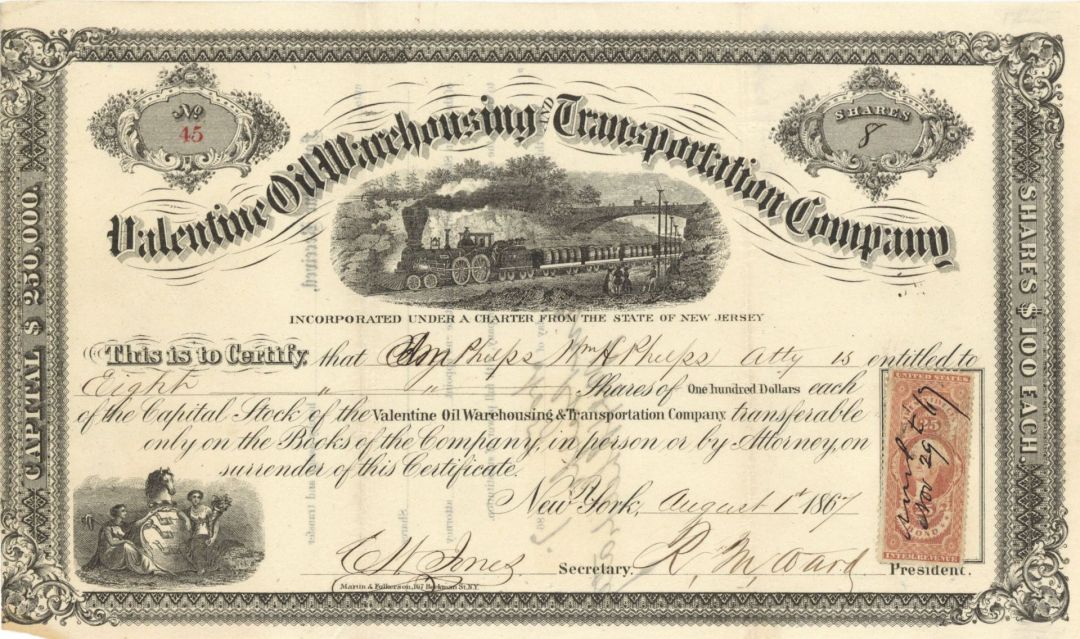 No
45
SHARES
8
Valentine Oil Warehousing AND Transportation Company
CAPITAL $ 250,000.
SHARES $ 100 EACH.
INCORPORATED UNDER A CHARTER FROM THE STATE OF NEW JERSEY
This is to Certify, that Phelps Wm H Phelps Atty is entitled to
Eight " " Shares of One hundred Dollars each
of the Capital Stock of the Valentine Oil Warehousing & Transportation Company, transferable
only on the Books of the Company, in person or by Attorney, on
surrender of this Certificate.
New York, August 1st 1867
E H Jones Secretary. R. M. Ward President.
Martin & Fulkerson, 167 Beekman St. N.Y.
UNITED STATES
25
INTER. REVENUE